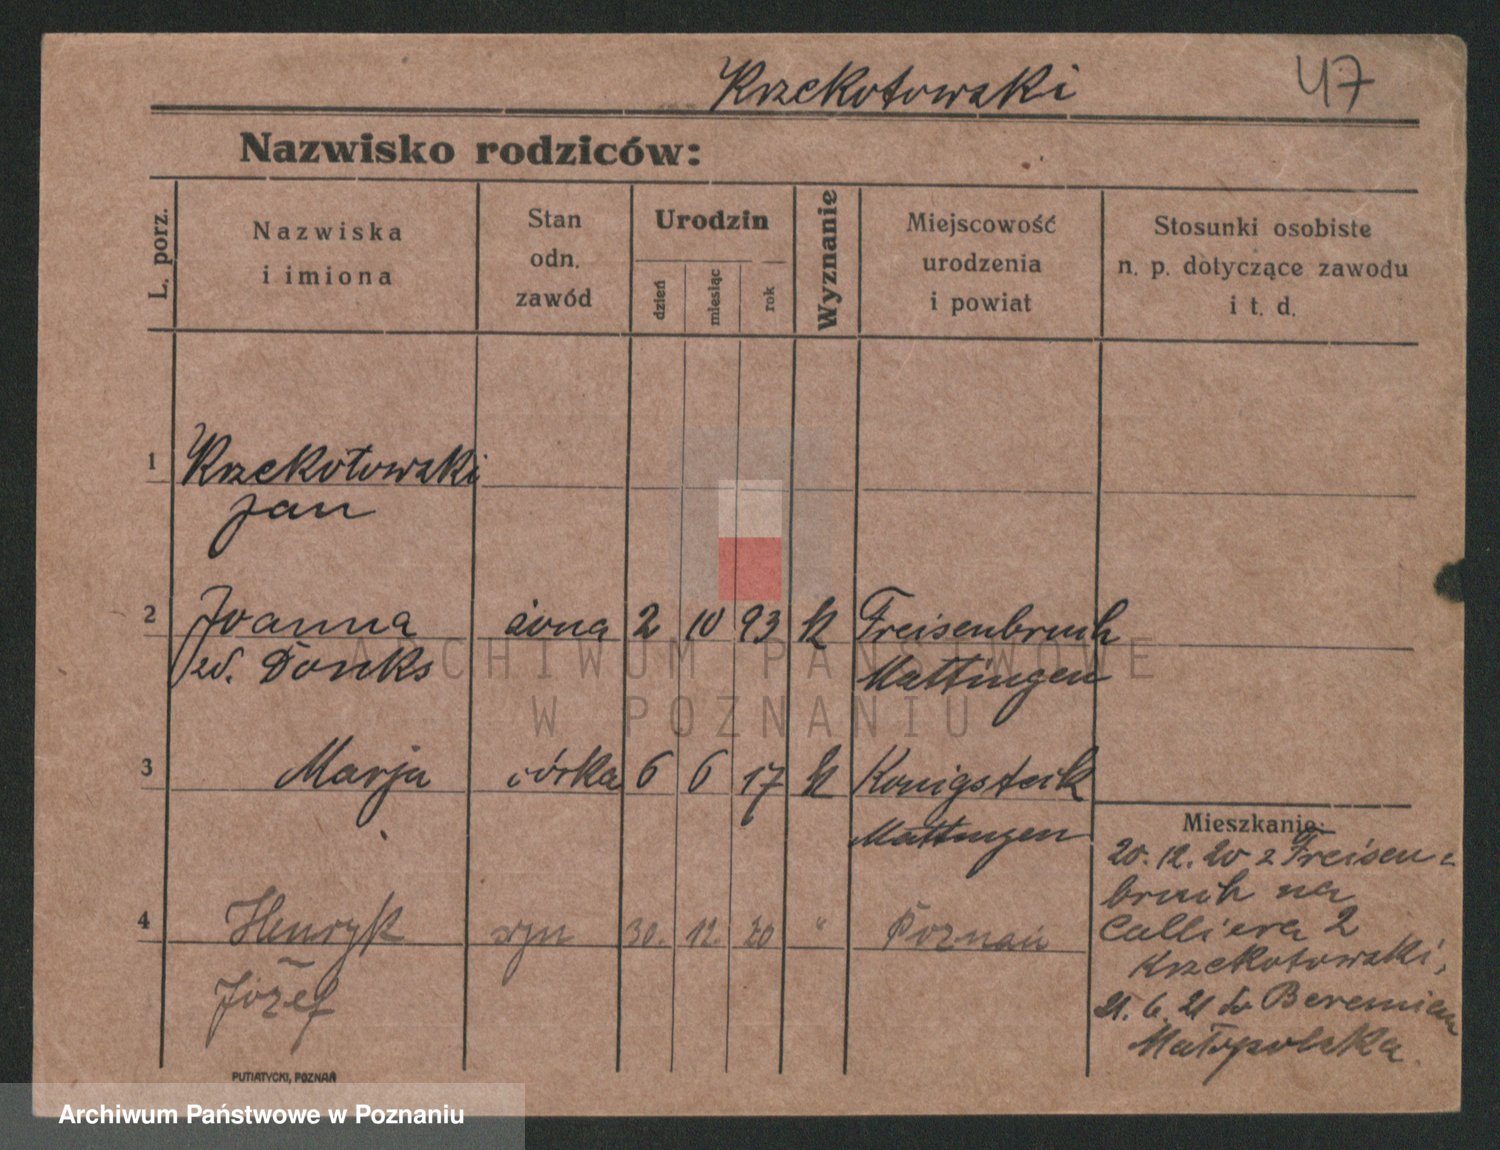 Krzekotowski 47
Nazwisko rodziców:
L. porz.
Nazwiska
i imiona
Stan
odn.
zawód
Urodzin
dzień
miesiąc
rok
Wyznanie
Miejscowość
urodzenia
i powiat
Stosunki osobiste
n. p. dotyczące zawodu
i t. d.
1 Krzekotowski
Jan
2 Joanna żona 2 10 93 k Freisenbruch
zd. Donks Mattingen
3 Marja córka 6 6 17 k Konigsteik
Mattingen
4 Henryk syn 30. 12. 20 " Poznań
Józef
Mieszkanie:
20. 12. 20 z Freisen-
bruch na
Calliera 2
Krzekotowski,
21. 6. 21 do
Małopolska.
PUTIATYCKI, POZNAŃ
ARCHIWUM PAŃSTWOWE
W POZNANIU
Archiwum Państwowe w Poznaniu